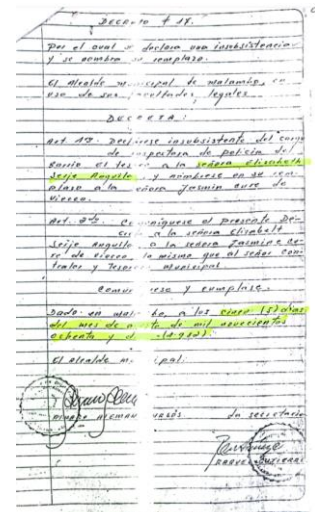 DECRETO # 17.
Por el cual se declara una insubsistencia
y se nombra su remplazo.
El Alcalde municipal de Malambo, en
uso de sus facultades legales.
DECRETA:
Art. 1º Declárese insubsistente del cargo
de inspectora de policía del
barrio el a la señora Elizabeth
Seije Angullo y nómbrese en su rem-
plazo a la señora Jasmin Cure de
Viecco.
Art. 2do Comuníquese el presente De-
a la señora Elizabelt
Seije Angullo a la señora Jasmine Cu-
re de Viecco, lo mismo que al señor Con-
tralor y Tesorero municipal.
Comuníquese y cumplase.
Dado en Malambo, a los cinco (5) días
del mes de agosto de mil novecientos
ochenta y dos (1.982).
El Alcalde municipal:
La secretaria